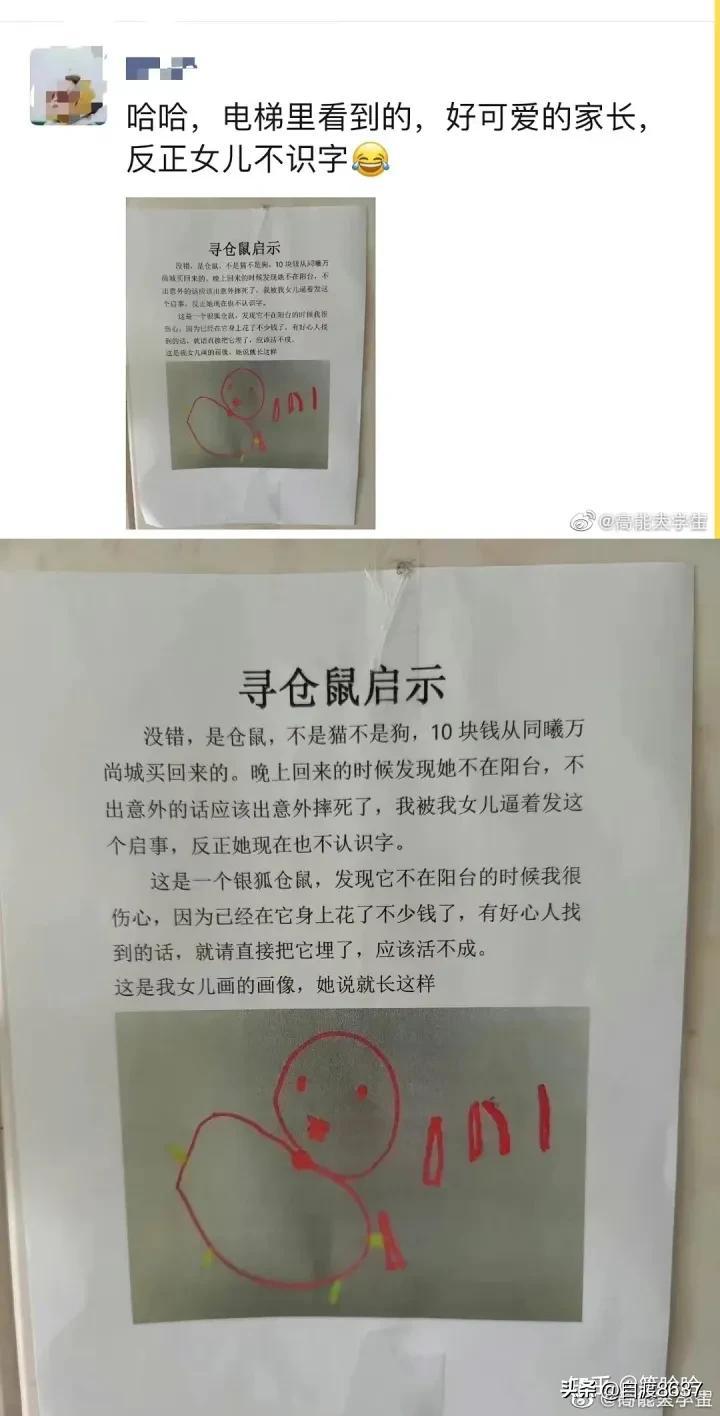 哈哈，电梯里看到的，好可爱的家长，
反正女儿不识字😂
寻仓鼠启示
没错，是仓鼠，不是猫不是狗，10 块钱从同曦万
尚城买回来的。晚上回来的时候发现她不在阳台，不
出意外的话应该出意外摔死了，我被我女儿逼着发这
个启事，反正她现在也不认识字。
这是一个银狐仓鼠，发现它不在阳台的时候我很
伤心，因为已经在它身上花了不少钱了，有好心人找
到的话，就请直接把它埋了，应该活不成。
这是我女儿画的画像，她说就长这样
@高能大学生
寻仓鼠启示
没错，是仓鼠，不是猫不是狗，10 块钱从同曦万
尚城买回来的。晚上回来的时候发现她不在阳台，不
出意外的话应该出意外摔死了，我被我女儿逼着发这
个启事，反正她现在也不认识字。
这是一个银狐仓鼠，发现它不在阳台的时候我很
伤心，因为已经在它身上花了不少钱了，有好心人找
到的话，就请直接把它埋了，应该活不成。
这是我女儿画的画像，她说就长这样
头条 @自渡8637